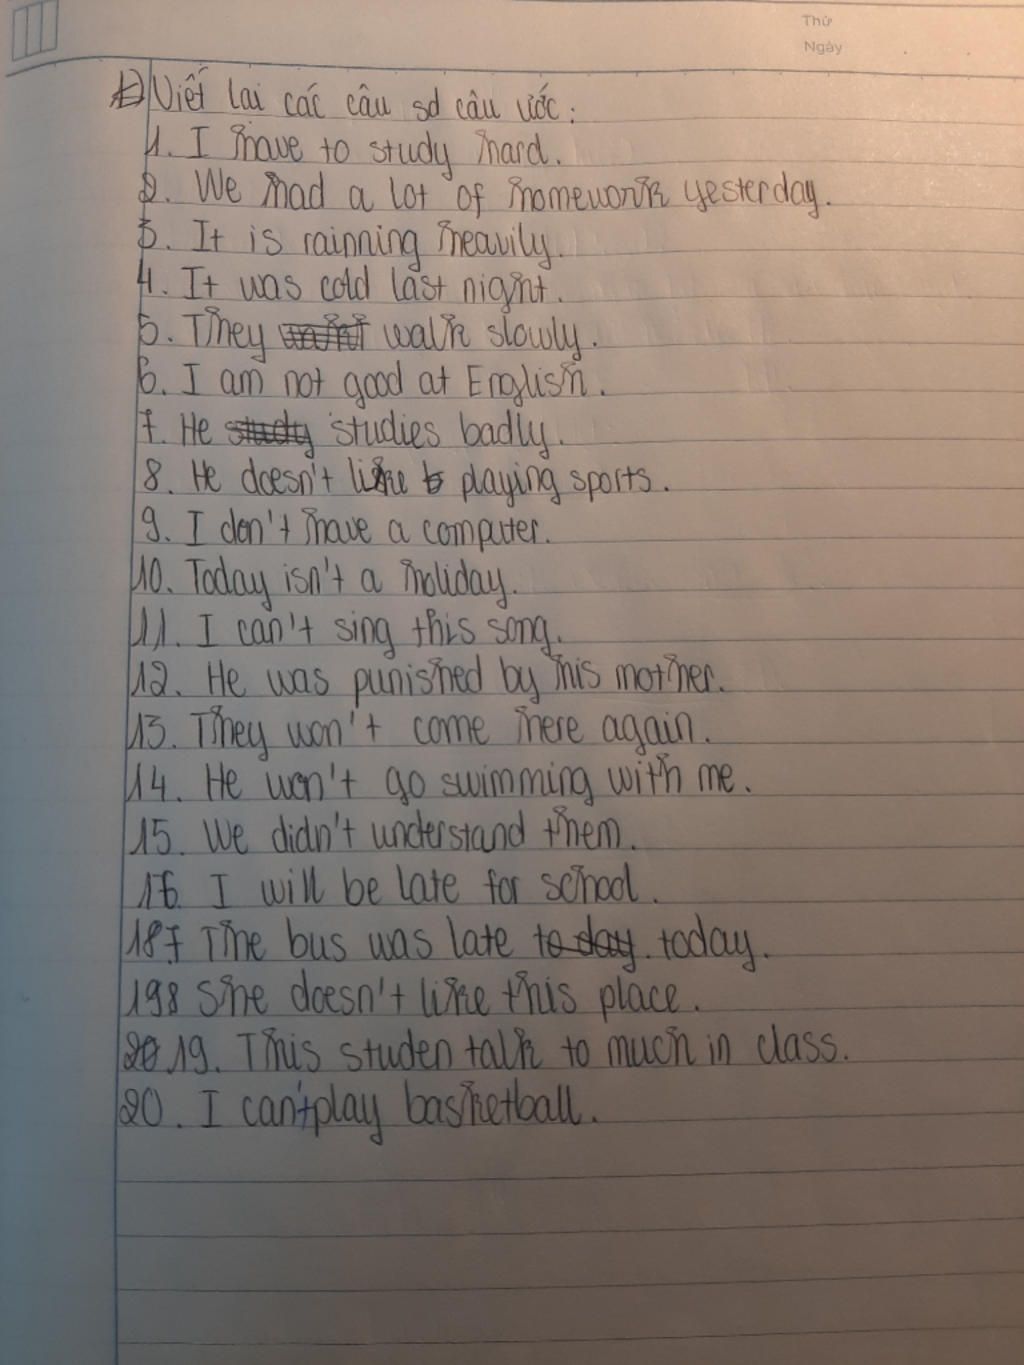 Thứ
Ngày
Viết lại các câu sd câu ước:
1. I have to study hard.
2. We had a lot of homework yesterday.
3. It is rainning heavily.
4. It was cold last night.
5. They walk slowly.
6. I am not good at English.
7. He study studies badly.
8. He doesn't like to playing sports.
9. I don't have a computer.
10. Today isn't a holiday.
11. I can't sing this song.
12. He was punished by his mother.
13. They won't come here again.
14. He won't go swimming with me.
15. We didn't understand them.
16 I will be late for school.
187 The bus was late to day. today.
198 She doesn't like this place.
20 19. This studen talk to much in class.
20. I can't play basketball.